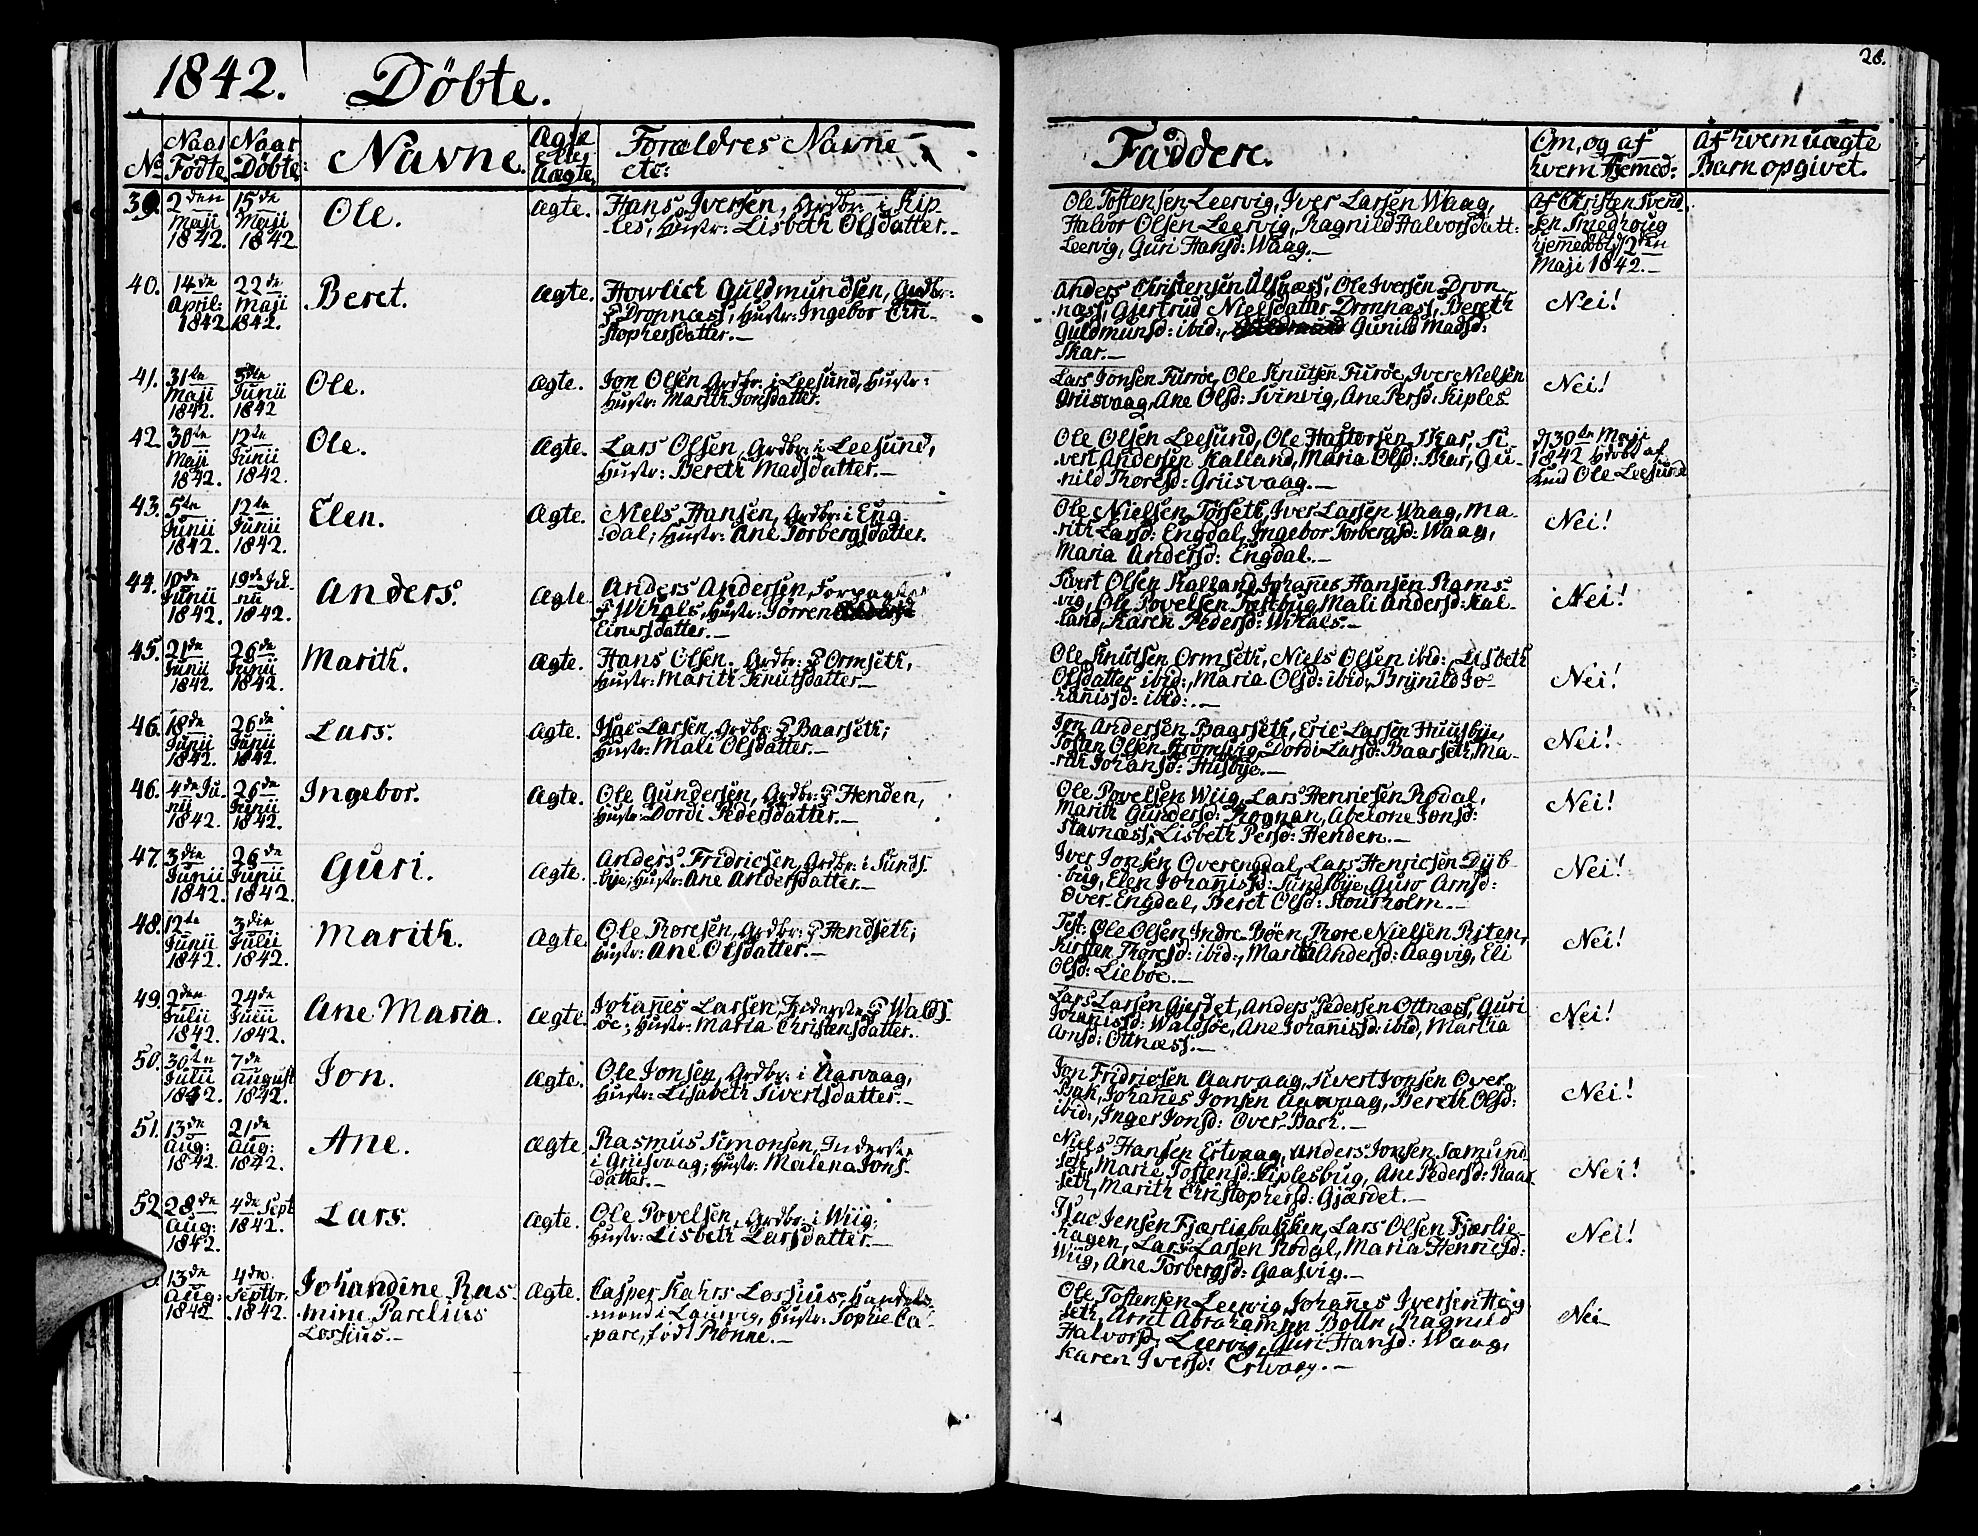 1842. Döbte.
28.
No
Naar Födte
Naar Döbte:
Navne.
Ægte eller Uægte.
Forældres Navne etc:
Faddere.
Om, og af hvem Hjemed:
Af hvem uægte Barn opgivet.
39. 2den Maji 1842. 15de Maji 1842
Ole.
Ægte.
Hans Iversen, Grdbr: i Kip-
-les, Hustr: Lisbeth Olsdatter.-
Ole Tostensen Leervig, Iver Larsen Waag,
Halvor Olsen Leervig, Ragnild Halvorsdatt:
Leervig, Guri Hansd: Waag.-
Af Christen Svend-
sen Smedhoug
hjemedöbt d 2den
Maji 1842.-
40. 14de April: 1842 22de Maji 1842.
Beret.
Ægte.
Howlich Guldmundsen, Grdbr:
P Dronnæss, Hustr: Ingebor Chri-
stophersdatter.-
Anders Christensen Ulsnæss, Ole Iversen Dron-
næss, Gjertrud Nielsdatter Dronnæss, Bereth
Guldmunsd: ibid:, Gunild Madsd:
Skar.-
Nei!
41. 31te Maji 1842. 5te Junii 1842
Ole.
Ægte.
Jon Olsen Grdbr: i Leesund, Hustr:
Hustr: Marith Jonsdatter.
Lars Jonsen Furröe, Ole Knutsen Furöe, Iver Nielsen
Griisvaag, Ane Olsd: Svinvig, Ane Persd: Kiples
Nei!
42 30te Maji 1842. 12te Junii 1842.
Ole.
Ægte.
Lars Olsen, Grdbr: i Leesund,
Hustr: Bereth Madsdatter.-
Ole Olsen Leesund, Ole Hastorsen Skar, Si-
vert Andersen Kalland, Maria Olsd: Skar, Gu-
nild Thoresd: Griisvaag.-
d 30te Maji
1842 döbt af
Ole Leesund
43. 5te Junii 1842. 12te Junii 1842.
Elen.
Ægte.
Niels Hansen, Grdbr: i Eng-
dal; Hustr: Ane Torbergsdatter.
Ole Nielsen Torseth, Iver Larsen Waag, Ma-
rith Larsd: Engdal, Ingebor Torbergsd: Waag,
Maria Andersd: Engdal.-
Nei!
44. 10de Junii 1842. 19de Ju-
nii 1842.
Anders.
Ægte.
Anders Andersen, Forpagter
P Wihals, Hustr: Torren
Einersdatter.-
Sivert Olsen Kalland, Johañes Hansen Rams-
vig, Ole Povelsen Mali Andersd: Kal-
land, Karen Pedersd: Wihals.-
Nei!
45. 21de Junii 1842. 26de Junii 1842.
Marith.
Ægte.
Hans Olsen. Grdbr: P Ormseth,
Hustr: Marith Knutsdatter.-
Ole Knutsen Ormseth, Niels Olsen ibid:, Lisbeth
Olsdatter ibid:, Maria Olsd: ibid:, Brynild Jo-
hañissd: ibid:.-
Nei!
46. 18de Junii 1842. 26de Junii 1842.
Lars.
Ægte.
Isac Larsen, Grdbr: P Baarseth;
Hustr: Mali Olsdatter.-
Jon Andersen Baarseth, Eric Larsen Huusbye,
Johan Olsen Strömsvig, Dordi Larsd: Baarseth, Ma-
rith Johansd: Husbye.-
Nei!
46. 4de Ju-
nii 1842. 26de Junii 1842.
Ingebor.
Ægte.
Ole Gundersen, Grdbr: P Henden,
Hustr: Dordi Pedersdatter.-
Ole Povelsen Wiig, Lars Henricsen Rödal,
Marith Gundersd: Rognan, Abelone Jonsd:
Stavnæss, Lisbeth Persd: Henden.-
Nei!
47. 3die Junii 1842. 26de Junii 1842.
Guri.
Ægte.
Anders Fridricsen, Grdbr: i Sunds-
bye; Hustr: Ane Andersdatter.-
Iver Jonsen Overengdal, Lars Henricsen Dyb-
bug, Elen Johañissd: Sundsbye, Guro Arnsd:
Over-Engdal, Beret Olsd: Stourholm.-
Nei!
48. 12te Junii 1842. 3die Julii 1842.
Marith.
Ægte
Ole Thoresen, Grdbr: P Hendseth;
Hustr: Ane Olsdatter.-
Test: Ole Olsen Indre-Böen, Thore Nielsen Riten,
Kirsten Thoresd: ibid:, Marith Andersd: Aagvig, Eli
Olsd: Lieböe.-
Nei!
49. 2den Julii 1842. 24de Julii 1842.
Ane Maria.
Ægte.
Johañes Larsen, Inderste P Walds-
öe; Hustr: Maria Christensdatter.
Lars Larsen Gjerdet, Anders Pedersen Ottnæss, Guri
Johañissd: Waldsöe, Ane Johañissd: ibid, Martha
Arnsd: Ottnæss.-
Nei!
50. 30te Julii 1842. 7de August 1842.
Jon.
Ægte.
Ole Jonsen, Grdbr: i Aarvaag,
Hustr: Lisabeth Sivertsdatter.-
Jon Fridricsen Aarvaag, Sivert Jonsen Over-
Bak, Johañes Jonsen Aarvaag, Bereth Olsd:
ibid:, Inger Jonsd: Over-Back.-
Nei!
51. 13de Aug: 1842. 21de Aug: 1842.
Ane.
Ægte.
Rasmus Simonsen, Inderste
i Griisvaag; Hustr: Malena Jons-
datter.-
Niels Hansen Ertvaag, Anders Jonsen Sæmund-
set, Marie Tostensd: Kiplesbug, Ane Pedersd: Raar-
seth, Marith Christophersd: Gjærdet.-
Nei!
52 28de Aug: 1842. 4de Sept 1842.
Lars.
Ægte.
Ole Povelsen, Grdbr: i Wiig;
Hustr: Lisbeth Larsdatter.-
Isac Jensen Fjærliebakken, Lars Olsen Fjærlie-
hagen, Lars Larsen Rodal, Maria Henricsd:
Wiig, Ane Torbergsd: Gaasvig.-
Nei!
13de Aug: 1842 4de Septbr. 1842.
Johandine Ras-
mine Parelius
Lossius.-
Ægte.
Casper Kahrs Lossius, Handels-
mand i Laurvig, Hustr: Sophie Ca-
pare, föd Rönne.-
Ole Tostensen Leervig, Johañes Iversen Hög-
set, Arnt Abrahamsen Botten, Ragnild
Halvorsd: Leervig, Guri Hansd: Waag,
Karen Iversd: Ertvaag.-
Nei